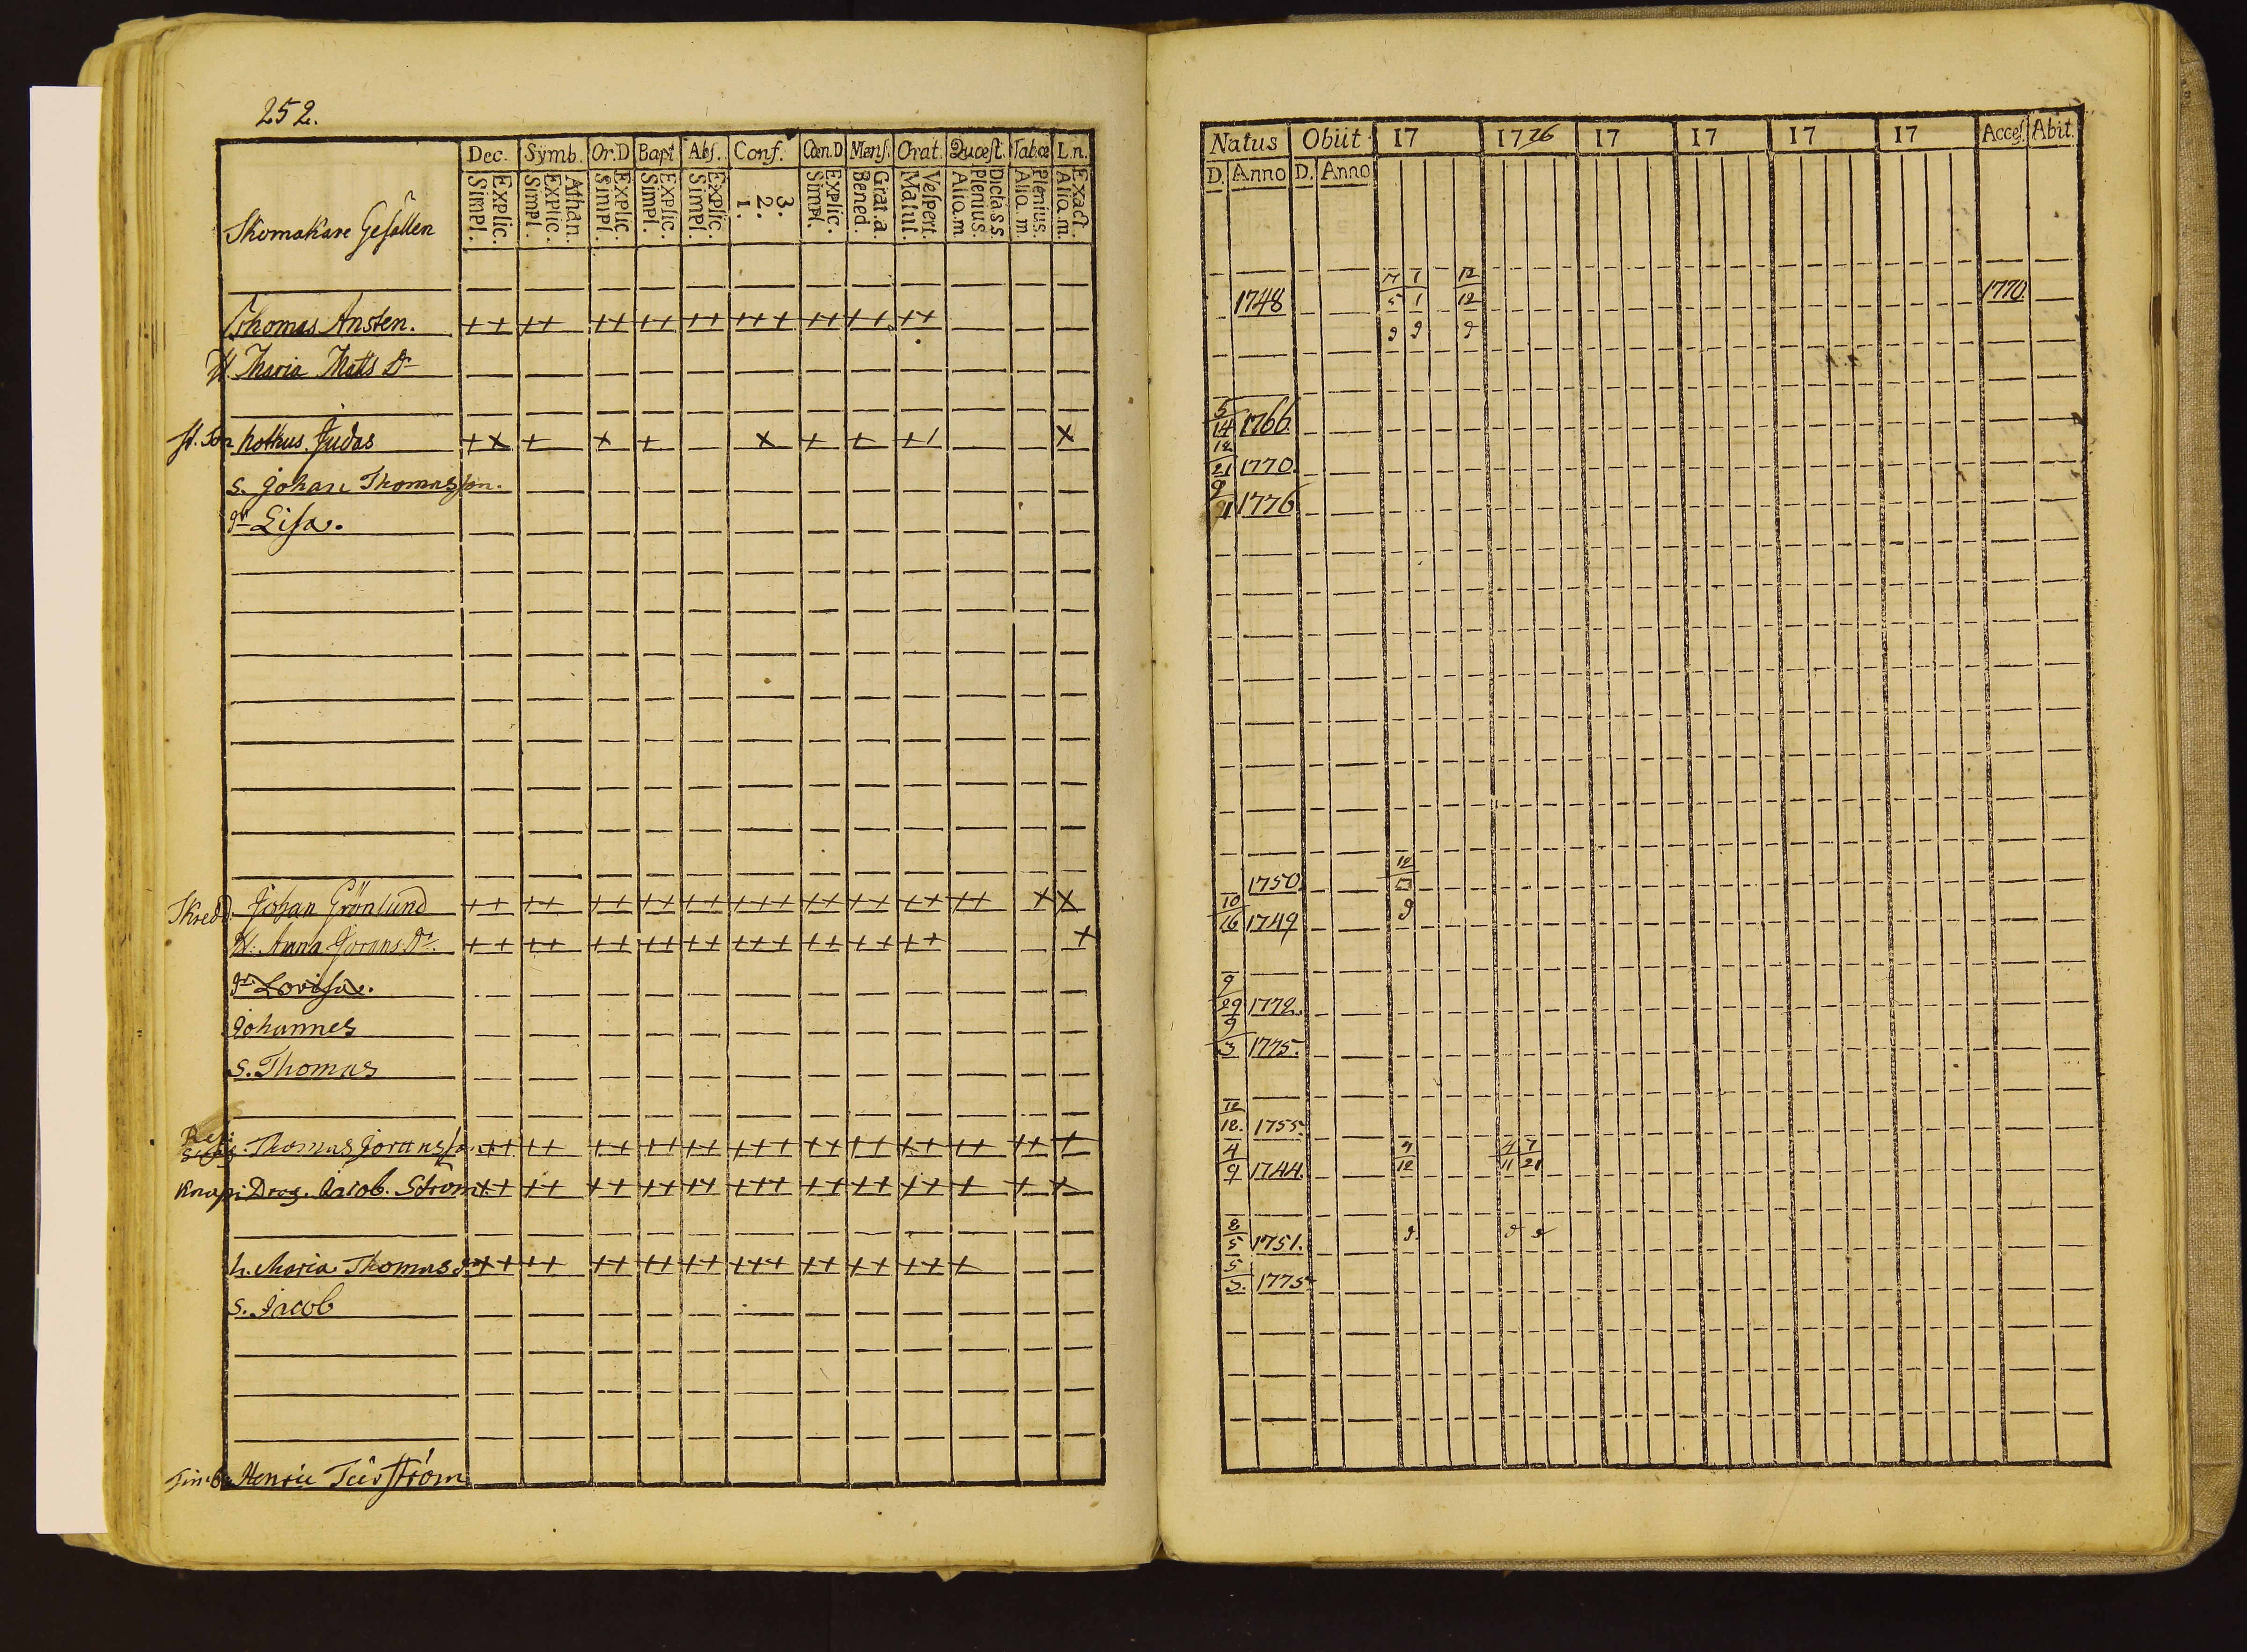 252.
Dec. Symb. Or.D Bapt Abs. Conf. Cœn.D Mens. Orat. Quæst. Tab.œ L.n.
Explic. Simpl. Athan. Explic. Simpl. Explic. Simpl. Explic. Simpl. Explic. Simpl. 3. 2. 1. Explic. Simpl. Grat.a. Bened. Vespert. Matut. Dicta.s.s. Plenius. Alio.m. Plenius. Aliq.m. Exact. Aliq.m.
Skomakare Gesällen
Thomas Ansten.
H. Maria Matts Dr
H. Son nothus. Judas
S. Johan Thomasson.
dr Lisa.
Skredd. Johan Grönlund
H. Anna Jörans Dr.
dr Lovisa.
Johannes
S. Thomas
Thomas Joransson
Knapi Drag. Jacob. Ström
h. Maria Thomas dr
S. Jacob
Timb. Henric
Natus Obiit 17 1776 17 17 17 17 Acces. Abit.
D. Anno D. Anno
1748 7/5 1/1 12/12 1770.
5/14 1766.
12/21 1770.
9/21 1776
1750. 12
10/16 1749
9/29 1772.
9/3 1775.
12/12. 1755.
4/9 1744. 4/11 7/21
8/5 1751.
5/3. 1775